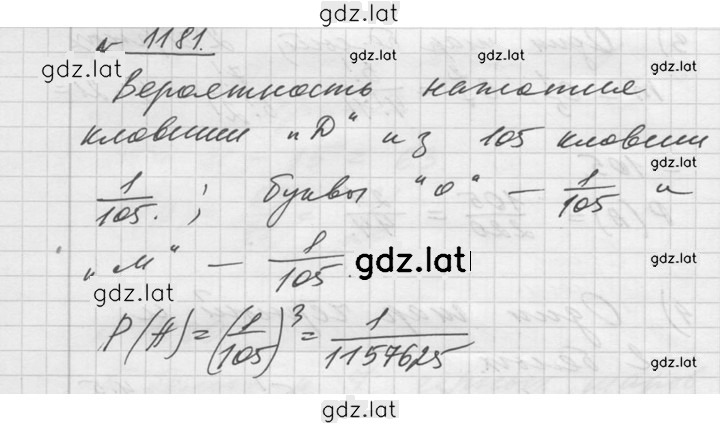 gdz.lat
№ 1181.
gdz.lat gdz.lat gdz.lat
Вероятность нажатия
клавиши "Д" из 105 клавиш
gdz.lat gdz.lat gdz.lat
1/105. ; буквы "о" – 1/105 и
"М" – 1/105.
gdz.lat gdz.lat gdz.lat
P(A) = (1/105)^3 = 1/1157625
gdz.lat
gdz.lat